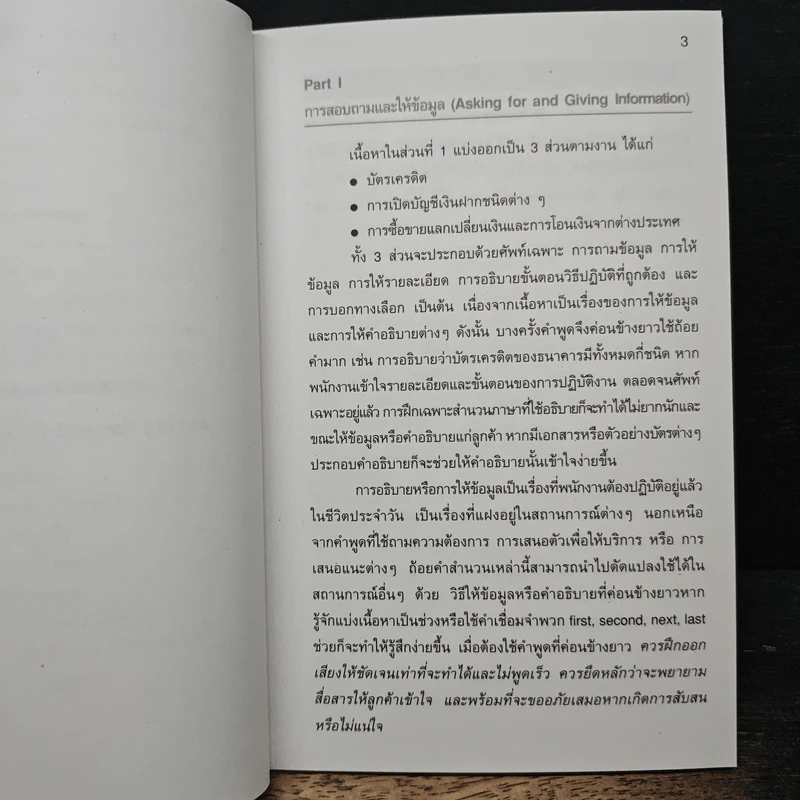 3
Part I
การสอบถามและให้ข้อมูล (Asking for and Giving Information)
เนื้อหาในส่วนที่ 1 แบ่งออกเป็น 3 ส่วนตามงาน ได้แก่
● บัตรเครดิต
● การเปิดบัญชีเงินฝากชนิดต่าง ๆ
● การซื้อขายแลกเปลี่ยนเงินและการโอนเงินจากต่างประเทศ
ทั้ง 3 ส่วนจะประกอบด้วยศัพท์เฉพาะ การถามข้อมูล การให้
ข้อมูล การให้รายละเอียด การอธิบายขั้นตอนวิธีปฏิบัติที่ถูกต้อง และ
การบอกทางเลือก เป็นต้น เนื่องจากเนื้อหาเป็นเรื่องของการให้ข้อมูล
และการให้คำอธิบายต่างๆ ดังนั้น บางครั้งคำพูดจึงค่อนข้างยาวใช้ถ้อย
คำมาก เช่น การอธิบายว่าบัตรเครดิตของธนาคารมีทั้งหมดกี่ชนิด หาก
พนักงานเข้าใจรายละเอียดและขั้นตอนของการปฏิบัติงาน ตลอดจนศัพท์
เฉพาะอยู่แล้ว การฝึกเฉพาะสำนวนภาษาที่ใช้อธิบายก็จะทำได้ไม่ยากนักและ
ขณะให้ข้อมูลหรือคำอธิบายแก่ลูกค้า หากมีเอกสารหรือตัวอย่างบัตรต่างๆ
ประกอบคำอธิบายก็จะช่วยให้คำอธิบายนั้นเข้าใจง่ายขึ้น
การอธิบายหรือการให้ข้อมูลเป็นเรื่องที่พนักงานต้องปฏิบัติอยู่แล้ว
ในชีวิตประจำวัน เป็นเรื่องที่แฝงอยู่ในสถานการณ์ต่างๆ นอกเหนือ
จากคำพูดที่ใช้ถามความต้องการ การเสนอตัวเพื่อให้บริการ หรือ การ
เสนอแนะต่างๆ ถ้อยคำสำนวนเหล่านี้สามารถนำไปดัดแปลงใช้ได้ใน
สถานการณ์อื่นๆ ด้วย วิธีให้ข้อมูลหรือคำอธิบายที่ค่อนข้างยาวหาก
รู้จักแบ่งเนื้อหาเป็นช่วงหรือใช้คำเชื่อมจำพวก first, second, next, last
ช่วยก็จะทำให้รู้สึกง่ายขึ้น เมื่อต้องใช้คำพูดที่ค่อนข้างยาว ควรฝึกออก
เสียงให้ชัดเจนเท่าที่จะทำได้และไม่พูดเร็ว ควรยึดหลักว่าจะพยายาม
สื่อสารให้ลูกค้าเข้าใจ และพร้อมที่จะขออภัยเสมอหากเกิดการสับสน
หรือไม่แน่ใจ